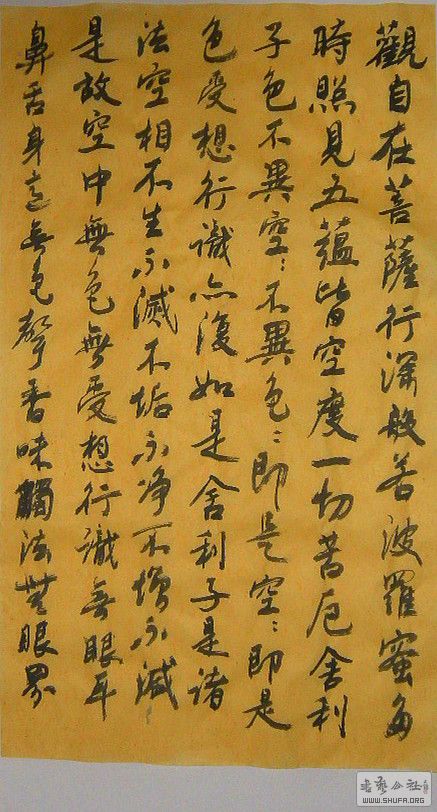 觀自在菩薩行深般若波羅蜜多
時照見五蘊皆空度一切苦厄舍利
子色不異空〻不異色〻即是空〻即是
色受想行識亦復如是舍利子是諸
法空相不生不滅不垢不淨不增不減
是故空中無色無受想行識無眼耳
鼻舌身意無色聲香味觸法無眼界
書藝公社
WWW.SHUFA.ORG